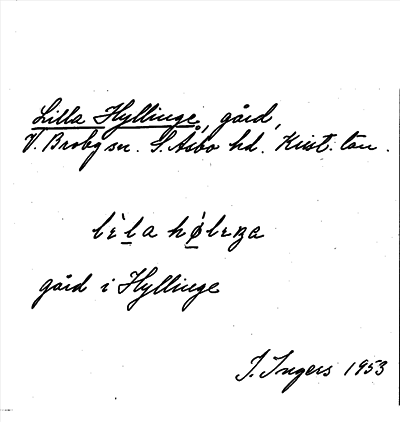 Lilla Hyllinge, gård,
V. Broby sn. S. Åsbo hd. Krist. län.
lɛ̀la hǿlɛŋa
gård i Hyllinge
I. Ingers 1953